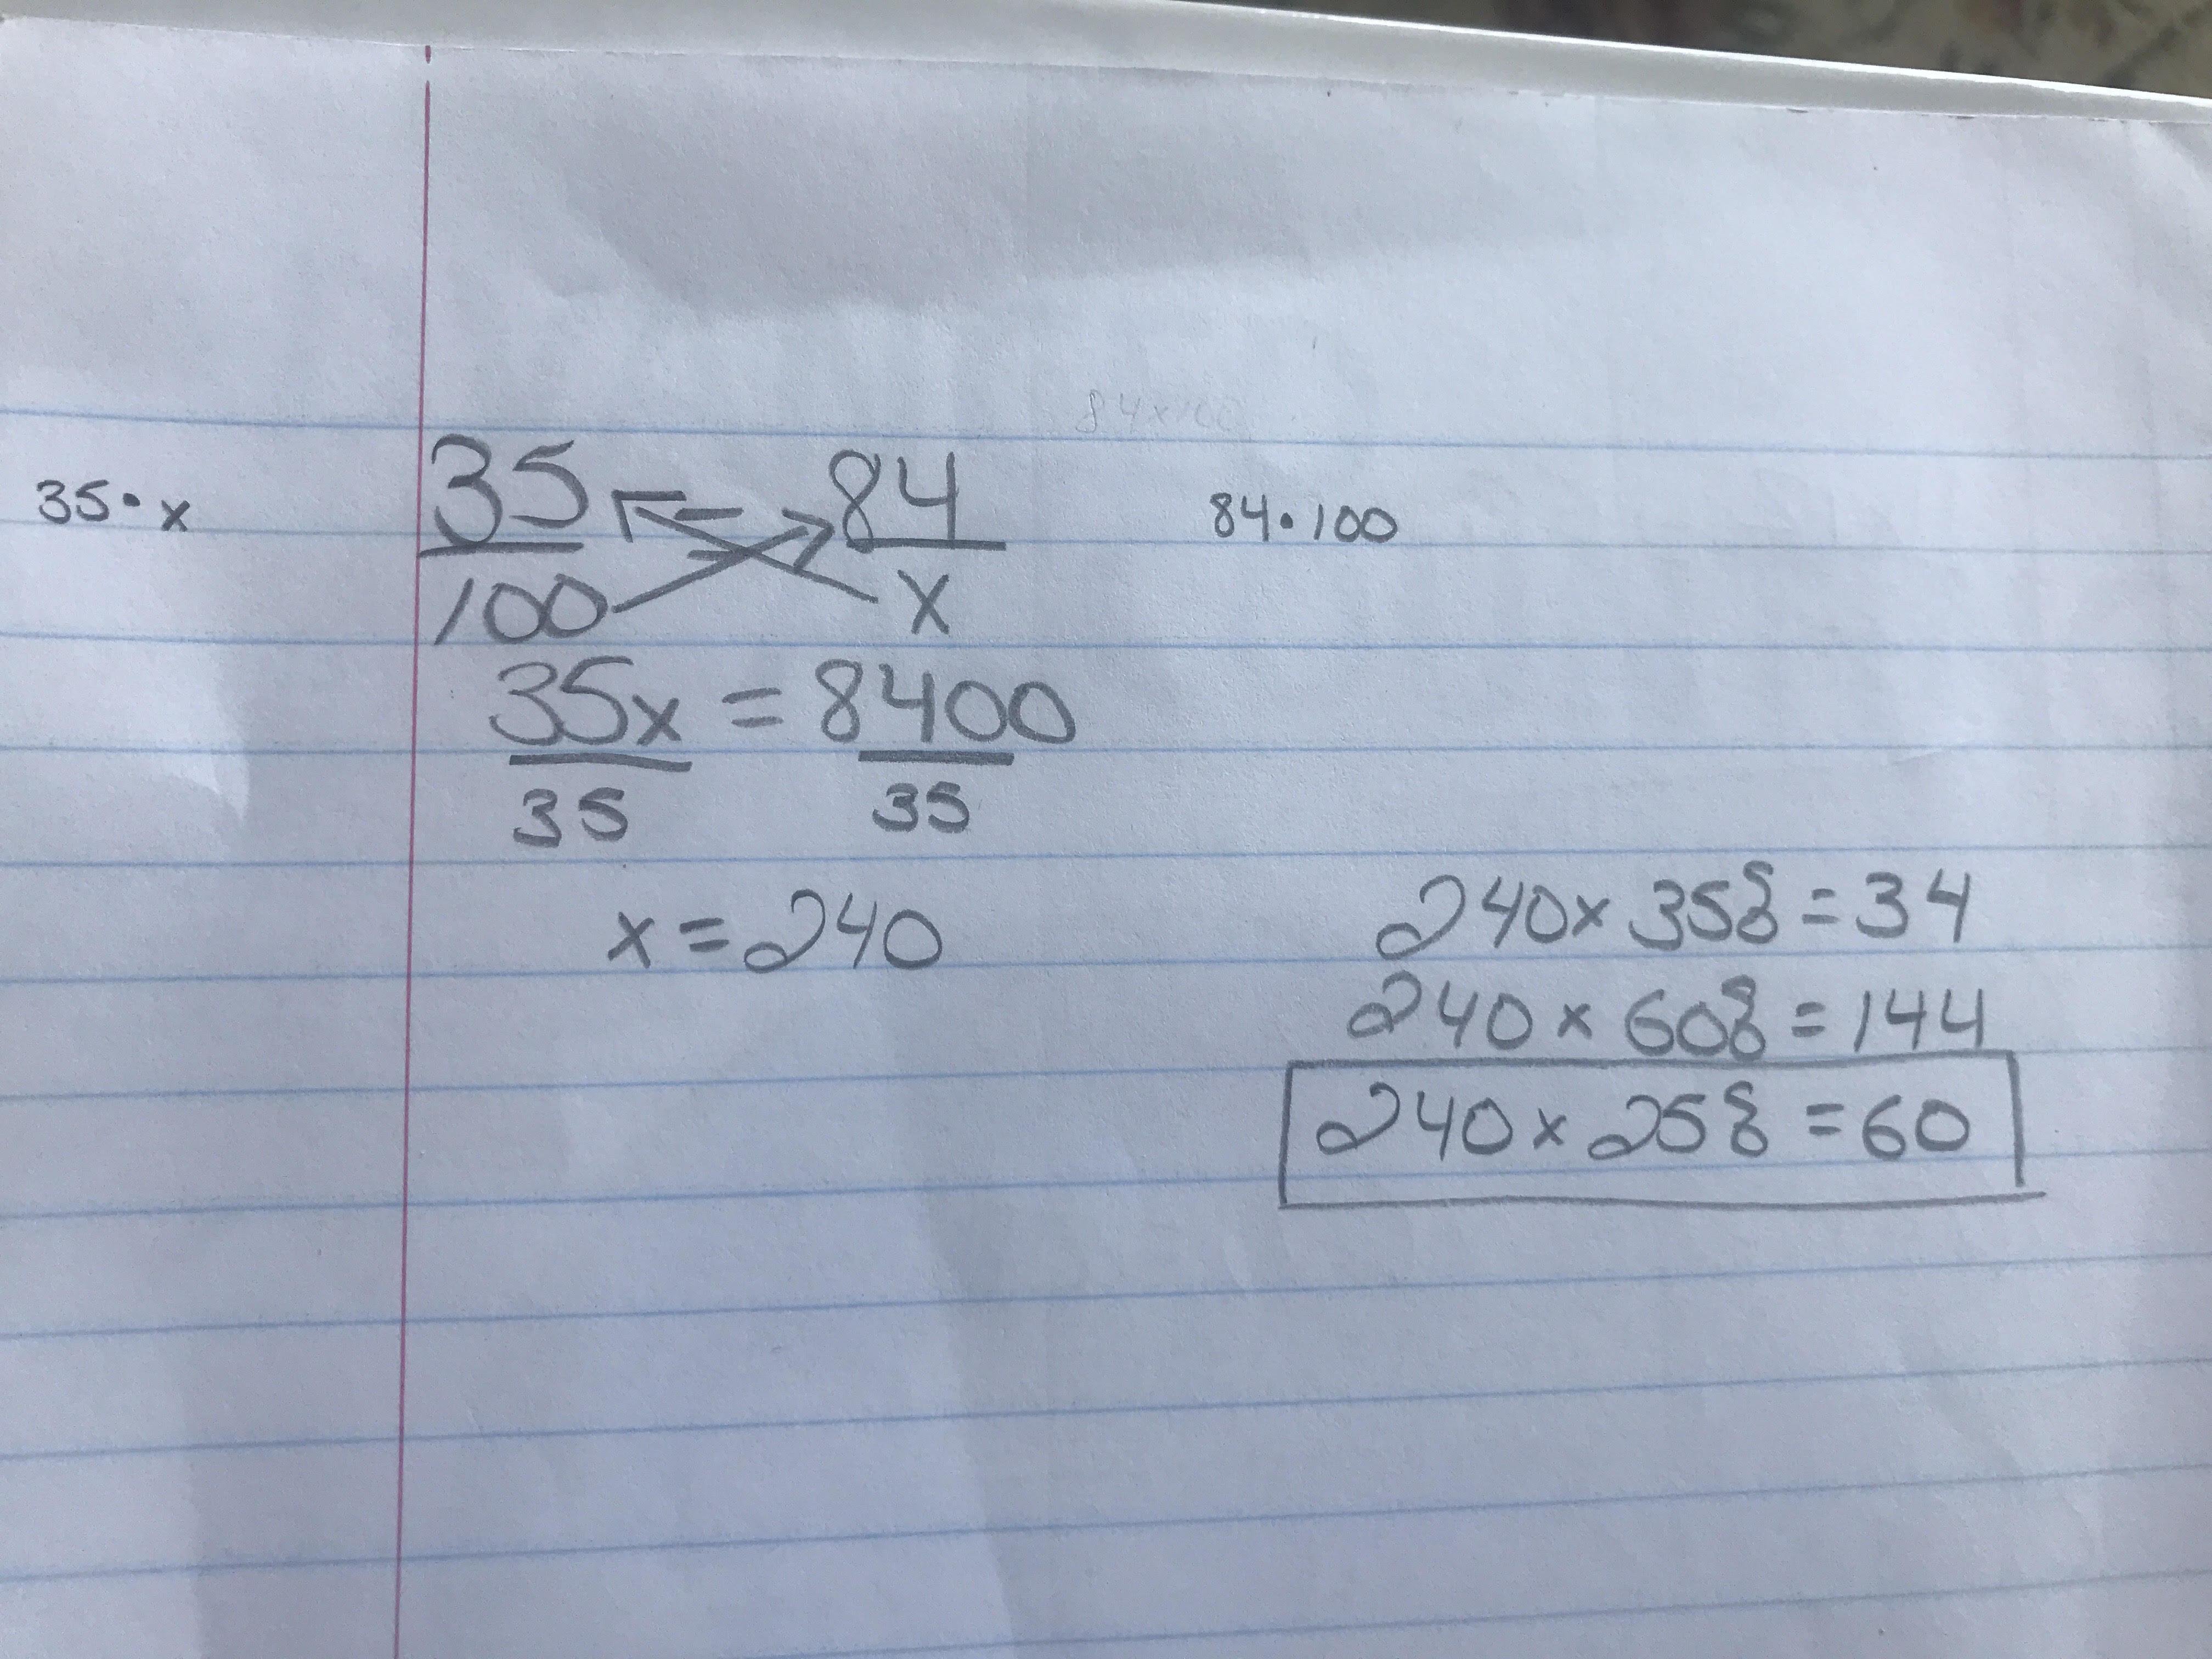 84x100
35•x 35/100 = 84/x 84•100
35x = 8400
35 35
x = 240
240 x 35% = 34
240 x 60% = 144
240 x 25% = 60